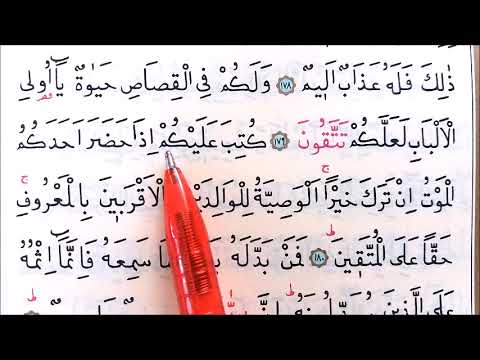 ذٰلِكَ فَلَهُ عَذَابٌ اَلٖيمٌ ١٧٨ وَلَكُمْ فِى الْقِصَاصِ حَيٰوةٌ يَٓا اُولِى
الْاَلْبَابِ لَعَلَّكُمْ تَتَّقُونَ ١٧٩ كُتِبَ عَلَيْكُمْ اِذَا حَضَرَ اَحَدَكُمُ
الْمَوْتُ اِنْ تَرَكَ خَيْرًا الْوَصِيَّةُ لِلْوَالِدَيْنِ الْاَقْرَبٖينَ بِالْمَعْرُوفِ
حَقًّا عَلَى الْمُتَّقٖينَ ١٨٠ فَمَنْ بَدَّلَهُ مَا سَمِعَهُ فَاِنَّمَٓا اِثْمُهُ
عَلَى الَّذٖينَ